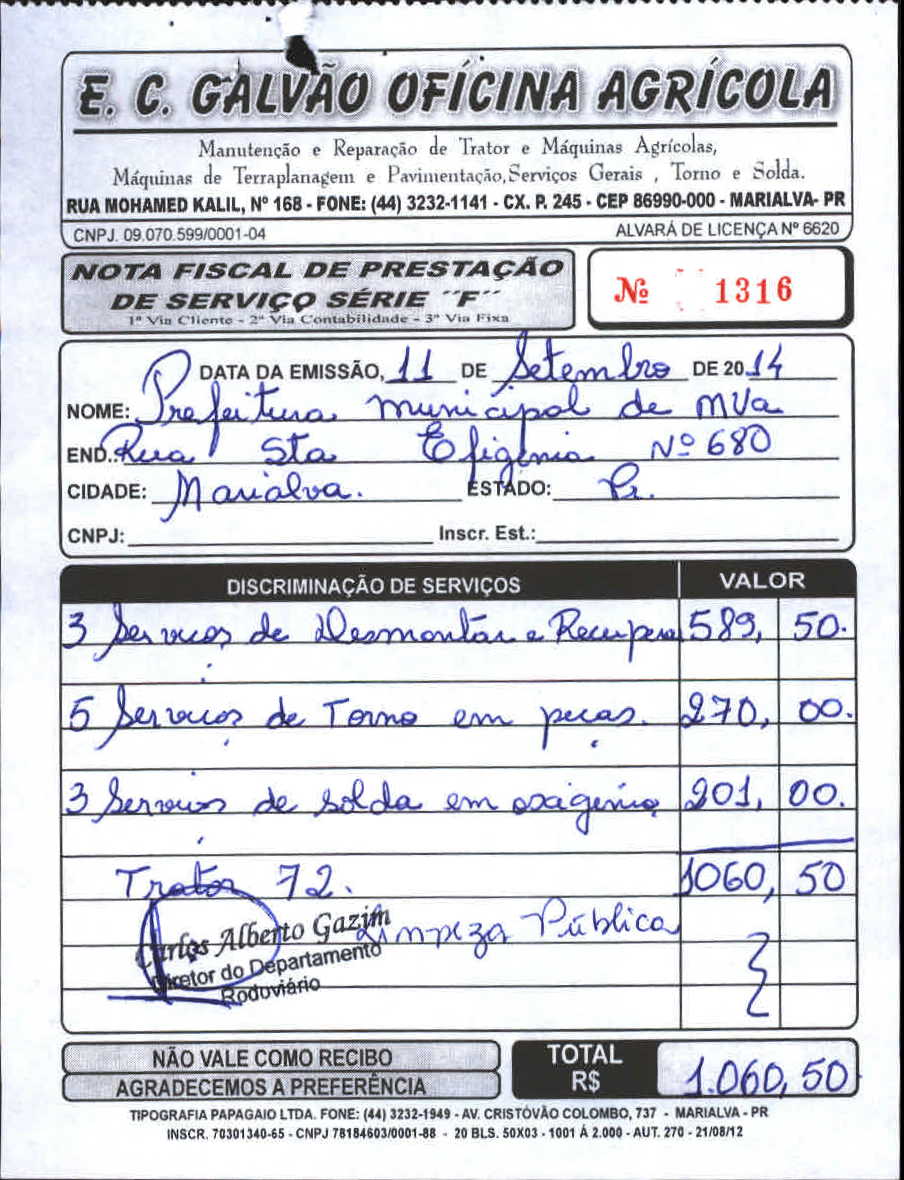 E. C. GALVÃO OFÍCINA AGRÍCOLA
Manutenção e Reparação de Trator e Máquinas Agrícolas,
Máquinas de Terraplanagem e Pavimentação,Serviços Gerais , Torno e Solda.
RUA MOHAMED KALIL, Nº 168 - FONE: (44) 3232-1141 - CX. P. 245 - CEP 86990-000 - MARIALVA- PR
CNPJ. 09.070.599/0001-04 ALVARÁ DE LICENÇA Nº 6620
NOTA FISCAL DE PRESTAÇÃO
DE SERVIÇO SÉRIE "F"
1ª Via Cliente - 2ª Via Contabilidade - 3ª Via Fixa
Nº 1316
DATA DA EMISSÃO, 11 DE Setembro DE 2014
NOME: Prefeitura municipal de MVa
END.: Rua Sta Efigênia Nº 680
CIDADE: Marialva. ESTADO: Pr.
CNPJ: Inscr. Est.:
DISCRIMINAÇÃO DE SERVIÇOS VALOR
3 Serviços de Desmontar e Recupera 589, 50.
5 Serviços de Torno em peças. 270, 00.
3 Serviços de solda em oxigenio 201, 00.
Trator 72. 1060, 50
Limpeza Pública
Carlos Alberto Gazim
Diretor do Departamento
Rodoviário
NÃO VALE COMO RECIBO
AGRADECEMOS A PREFERÊNCIA
TOTAL R$ 1.060, 50
TIPOGRAFIA PAPAGAIO LTDA. FONE: (44) 3232-1949 - AV. CRISTÓVÃO COLOMBO, 737 - MARIALVA - PR
INSCR. 70301340-65 - CNPJ 78184603/0001-88 - 20 BLS. 50X03 - 1001 Á 2.000 - AUT. 270 - 21/08/12